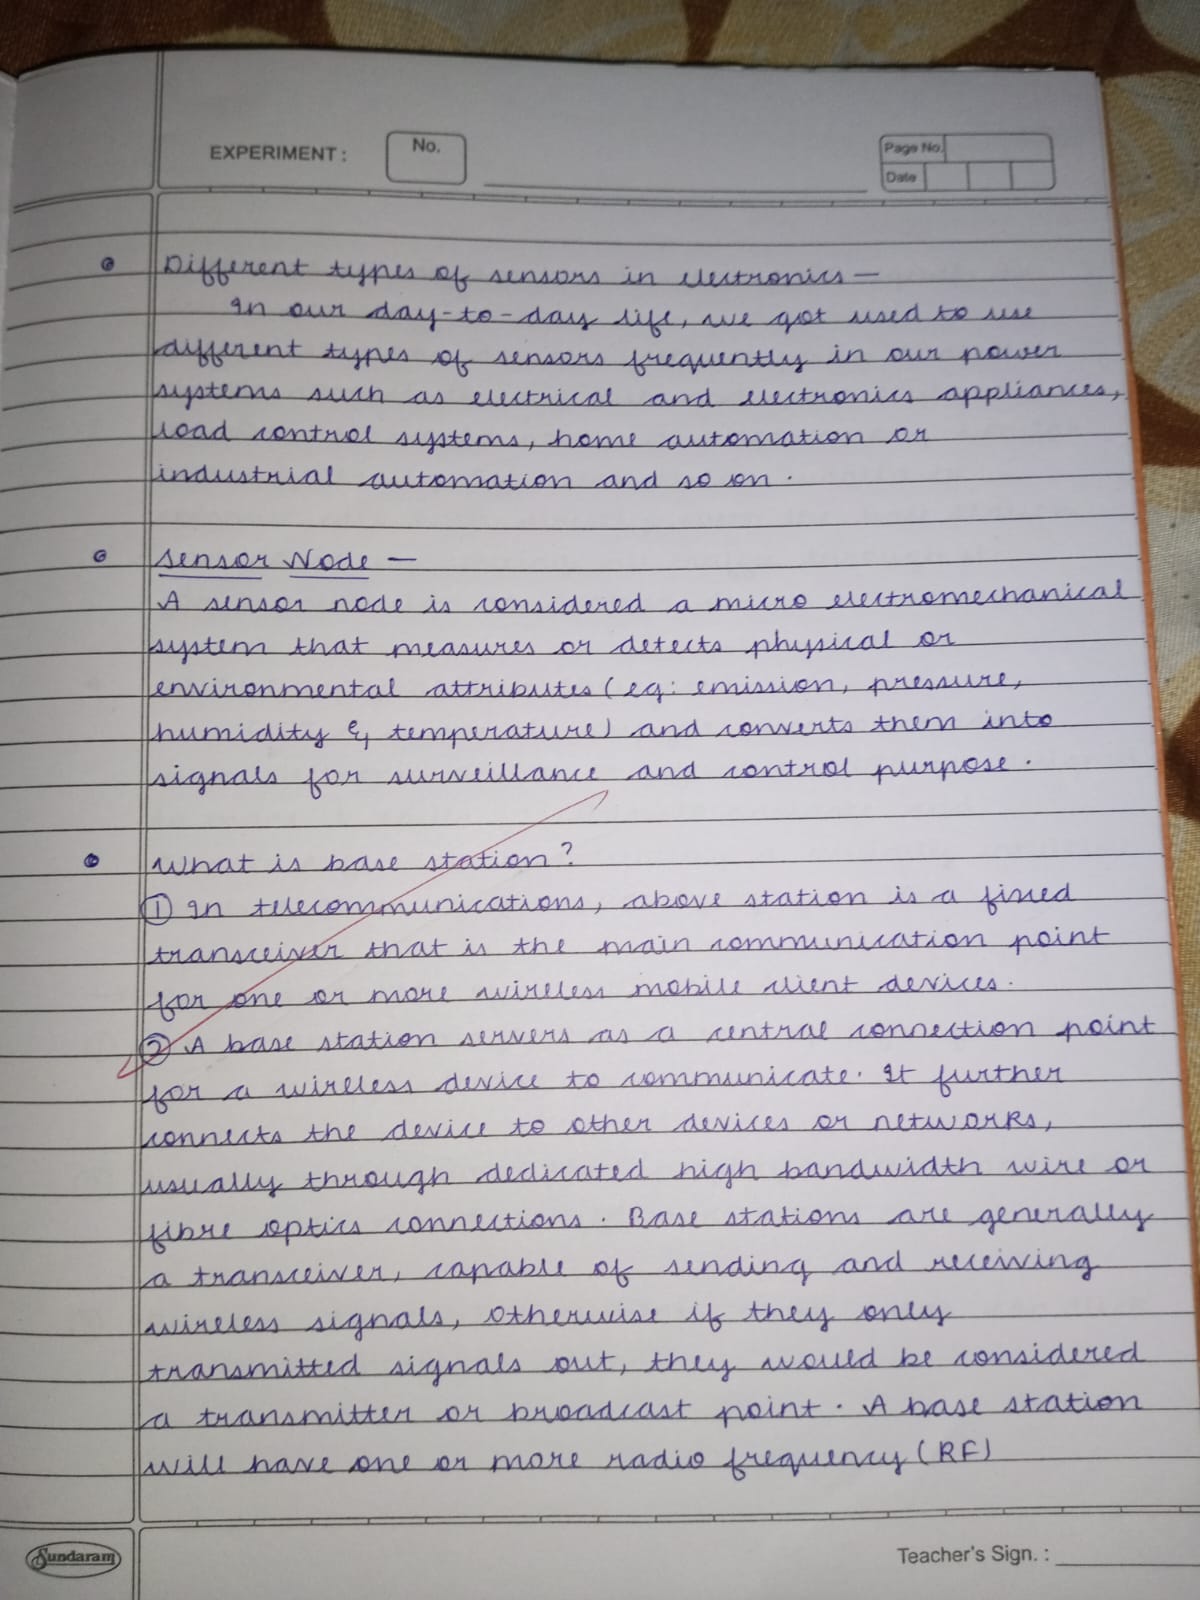 EXPERIMENT : No.
Page No.
Date
Different types of sensors in electronics —
In our day-to-day life, we got used to use
different types of sensors frequently in our power
systems such as electrical and electronics appliances,
load control systems, home automation or
industrial automation and so on.
Sensor Node —
A sensor node is considered a micro electromechanical
system that measures or detects physical or
environmental attributes (eg: emission, pressure,
humidity & temperature) and converts them into
signals for surveillance and control purpose.
What is base station?
① In telecommunications, above station is a fixed
transceiver that is the main communication point
for one or more wireless mobile client devices.
② A base station servers as a central connection point
for a wireless device to communicate. It further
connects the device to other devices or networks,
usually through dedicated high bandwidth wire or
fibre optics connections. Base stations are generally
a transceiver, capable of sending and receiving
wireless signals, otherwise if they only
transmitted signals out, they would be considered
a transmitter or broadcast point. A base station
will have one or more radio frequency (RF)
Sundaram
Teacher's Sign. :